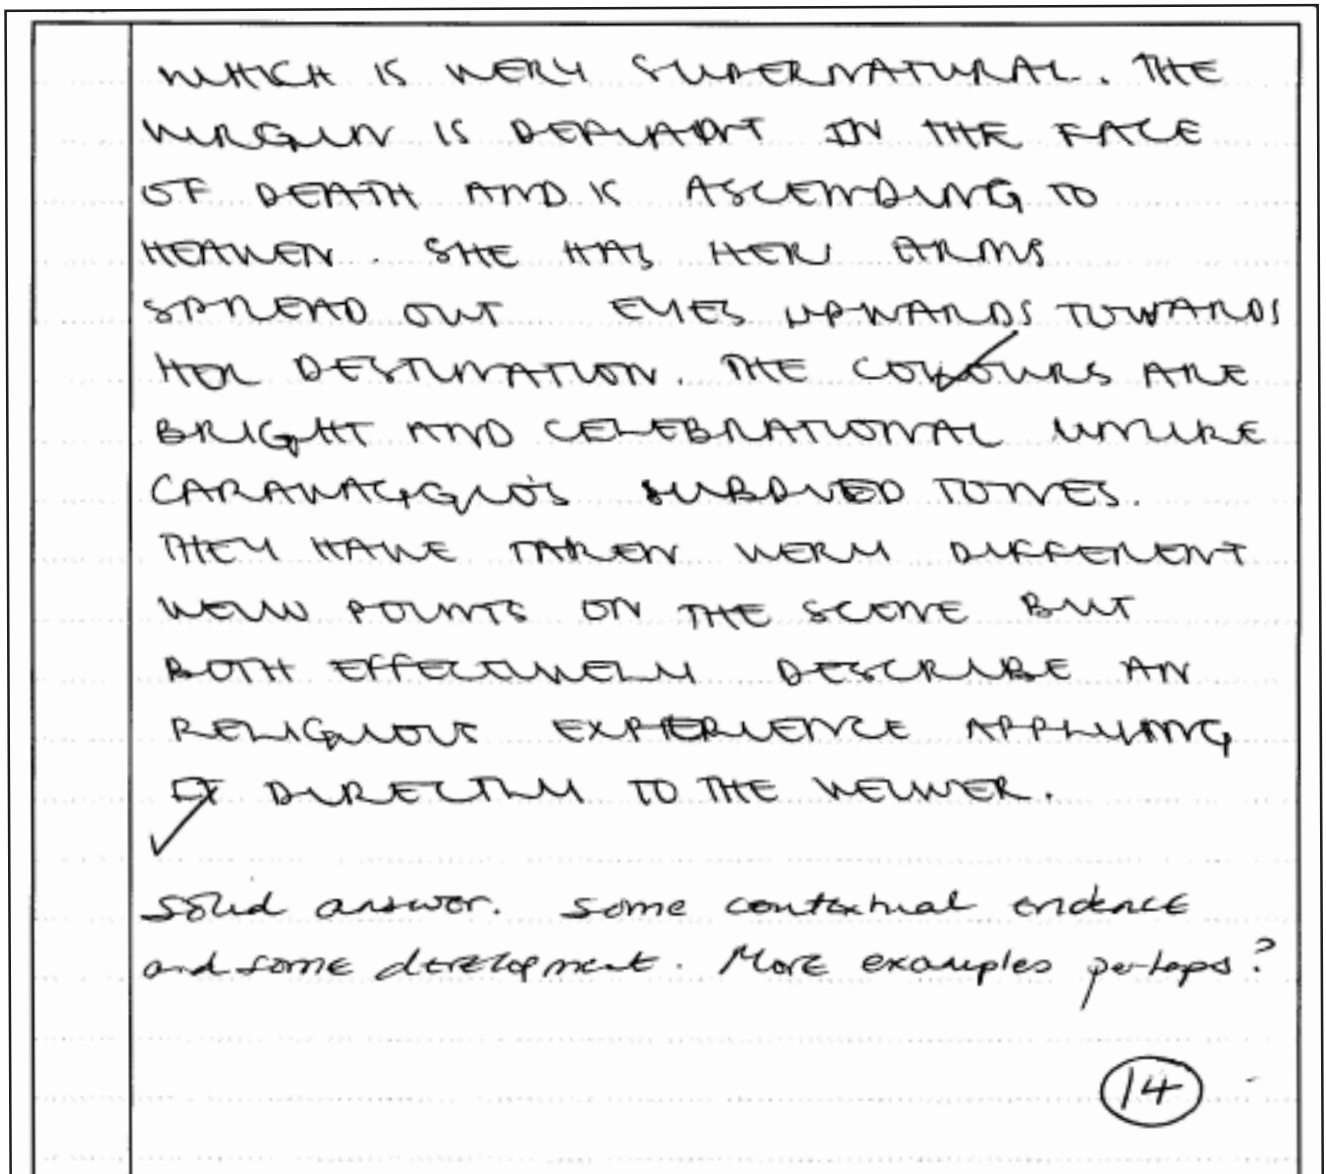 WHICH IS VERY SUPERNATURAL. THE
VIRGIN IS DEFIANT IN THE FACE
OF DEATH AND IS ASCENDING TO
HEAVEN. SHE HAS HER ARMS
SPREAD OUT EYES UPWARDS TOWARDS
HER DESTINATION. THE COLOURS ARE
BRIGHT AND CELEBRATIONAL UNLIKE
CARAVAGGIO'S SUBDUED TONES.
THEY HAVE TAKEN VERY DIFFERENT
VIEW POINTS ON THE SCENE BUT
BOTH EFFECTIVELY DESCRIBE AN
RELIGIOUS EXPERIENCE APPLYING
IT DIRECTLY TO THE VIEWER.
Solid answer. Some contextual evidence
and some development. More examples perhaps?
14